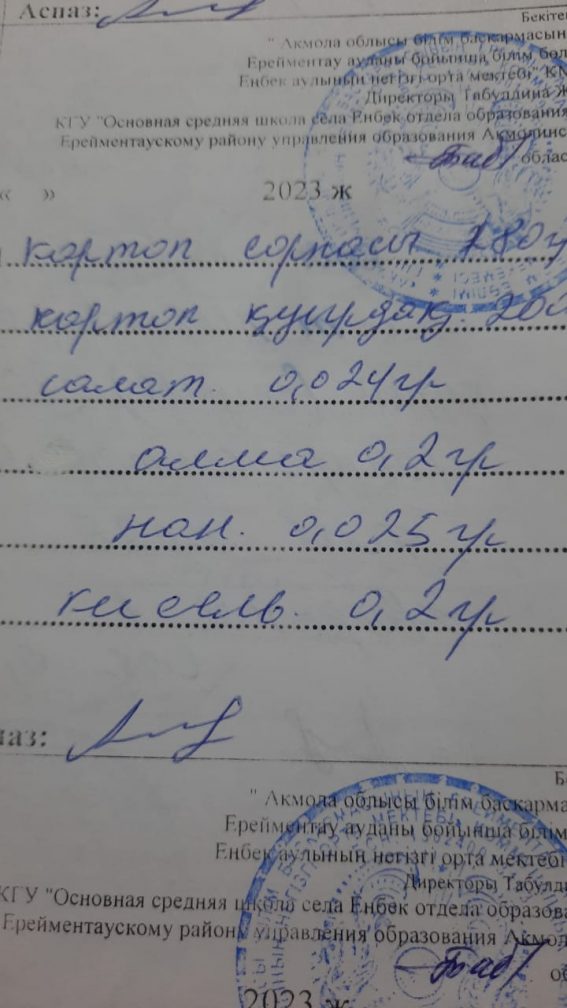 Аспаз:
Бекіте
" Акмола облысы білім баскармасын
Ерейментау ауданы бойынша білім бөл
Еңбек аулының негізгі орта мектебі" КМ
Директоры Табулдина Ж
КГУ "Основная средняя школа села Еңбек отдела образования
Ерейментаускому району управления образования Акмолинс
облас
« » 2023 ж
картоп сорпасы 280г
картоп қуырдақ. 200
салат. 0,024гр
алма 0,2гр
нан. 0,025гр
кисель. 0,2гр
паз:
Б
" Акмола облысы білім баскарма
Ерейментау ауданы бойынша білім
Еңбек аулының негізгі орта мектебі
Директоры Табулди
КГУ "Основная средняя школа села Еңбек отдела образова
Ерейментаускому району управления образования Акмол
об
2023 ж